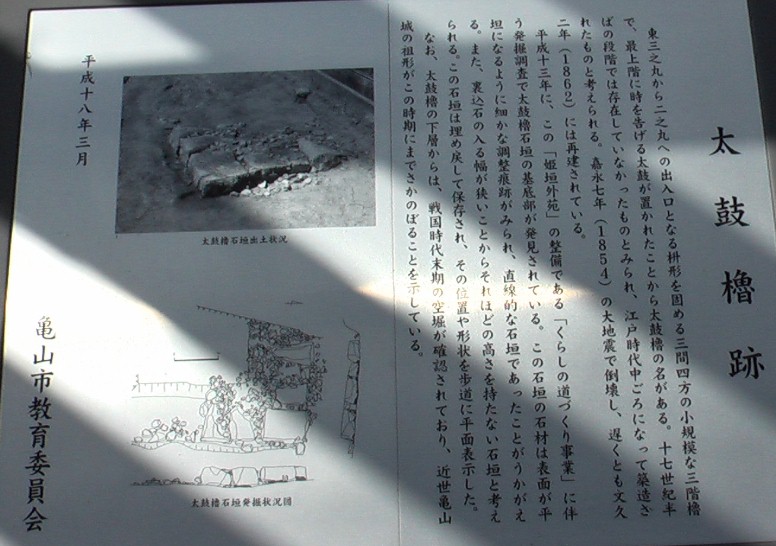 太鼓櫓跡
東三之丸から二之丸への出入口となる枡形を固める三間四方の小規模な三階櫓
で、最上階に時を告げる太鼓が置かれたことから太鼓櫓の名がある。十七世紀半
ばの段階では存在していなかったものとみられ、江戸時代中ごろになって築造さ
れたものと考えられる。嘉永七年（1854）の大地震で倒壊し、遅くとも文久
二年（1862）には再建されている。
平成十三年に、この「姫垣外苑」の整備である「くらしの道づくり事業」に伴
う発掘調査で太鼓櫓石垣の基底部が発見されている。この石垣の石材は表面が平
坦になるように細かな調整痕跡がみられ、直線的な石垣であったことがうかがえ
る。また、裏込石の入る幅が狭いことからそれほどの高さを持たない石垣と考え
られる。この石垣は埋め戻して保存され、その位置や形状を歩道に平面表示した。
なお、太鼓櫓の下層からは、戦国時代末期の空堀が確認されており、近世亀山
城の祖形がこの時期にまでさかのぼることを示している。
太鼓櫓石垣出土状況
太鼓櫓石垣発掘状況図
平成十八年三月
亀山市教育委員会